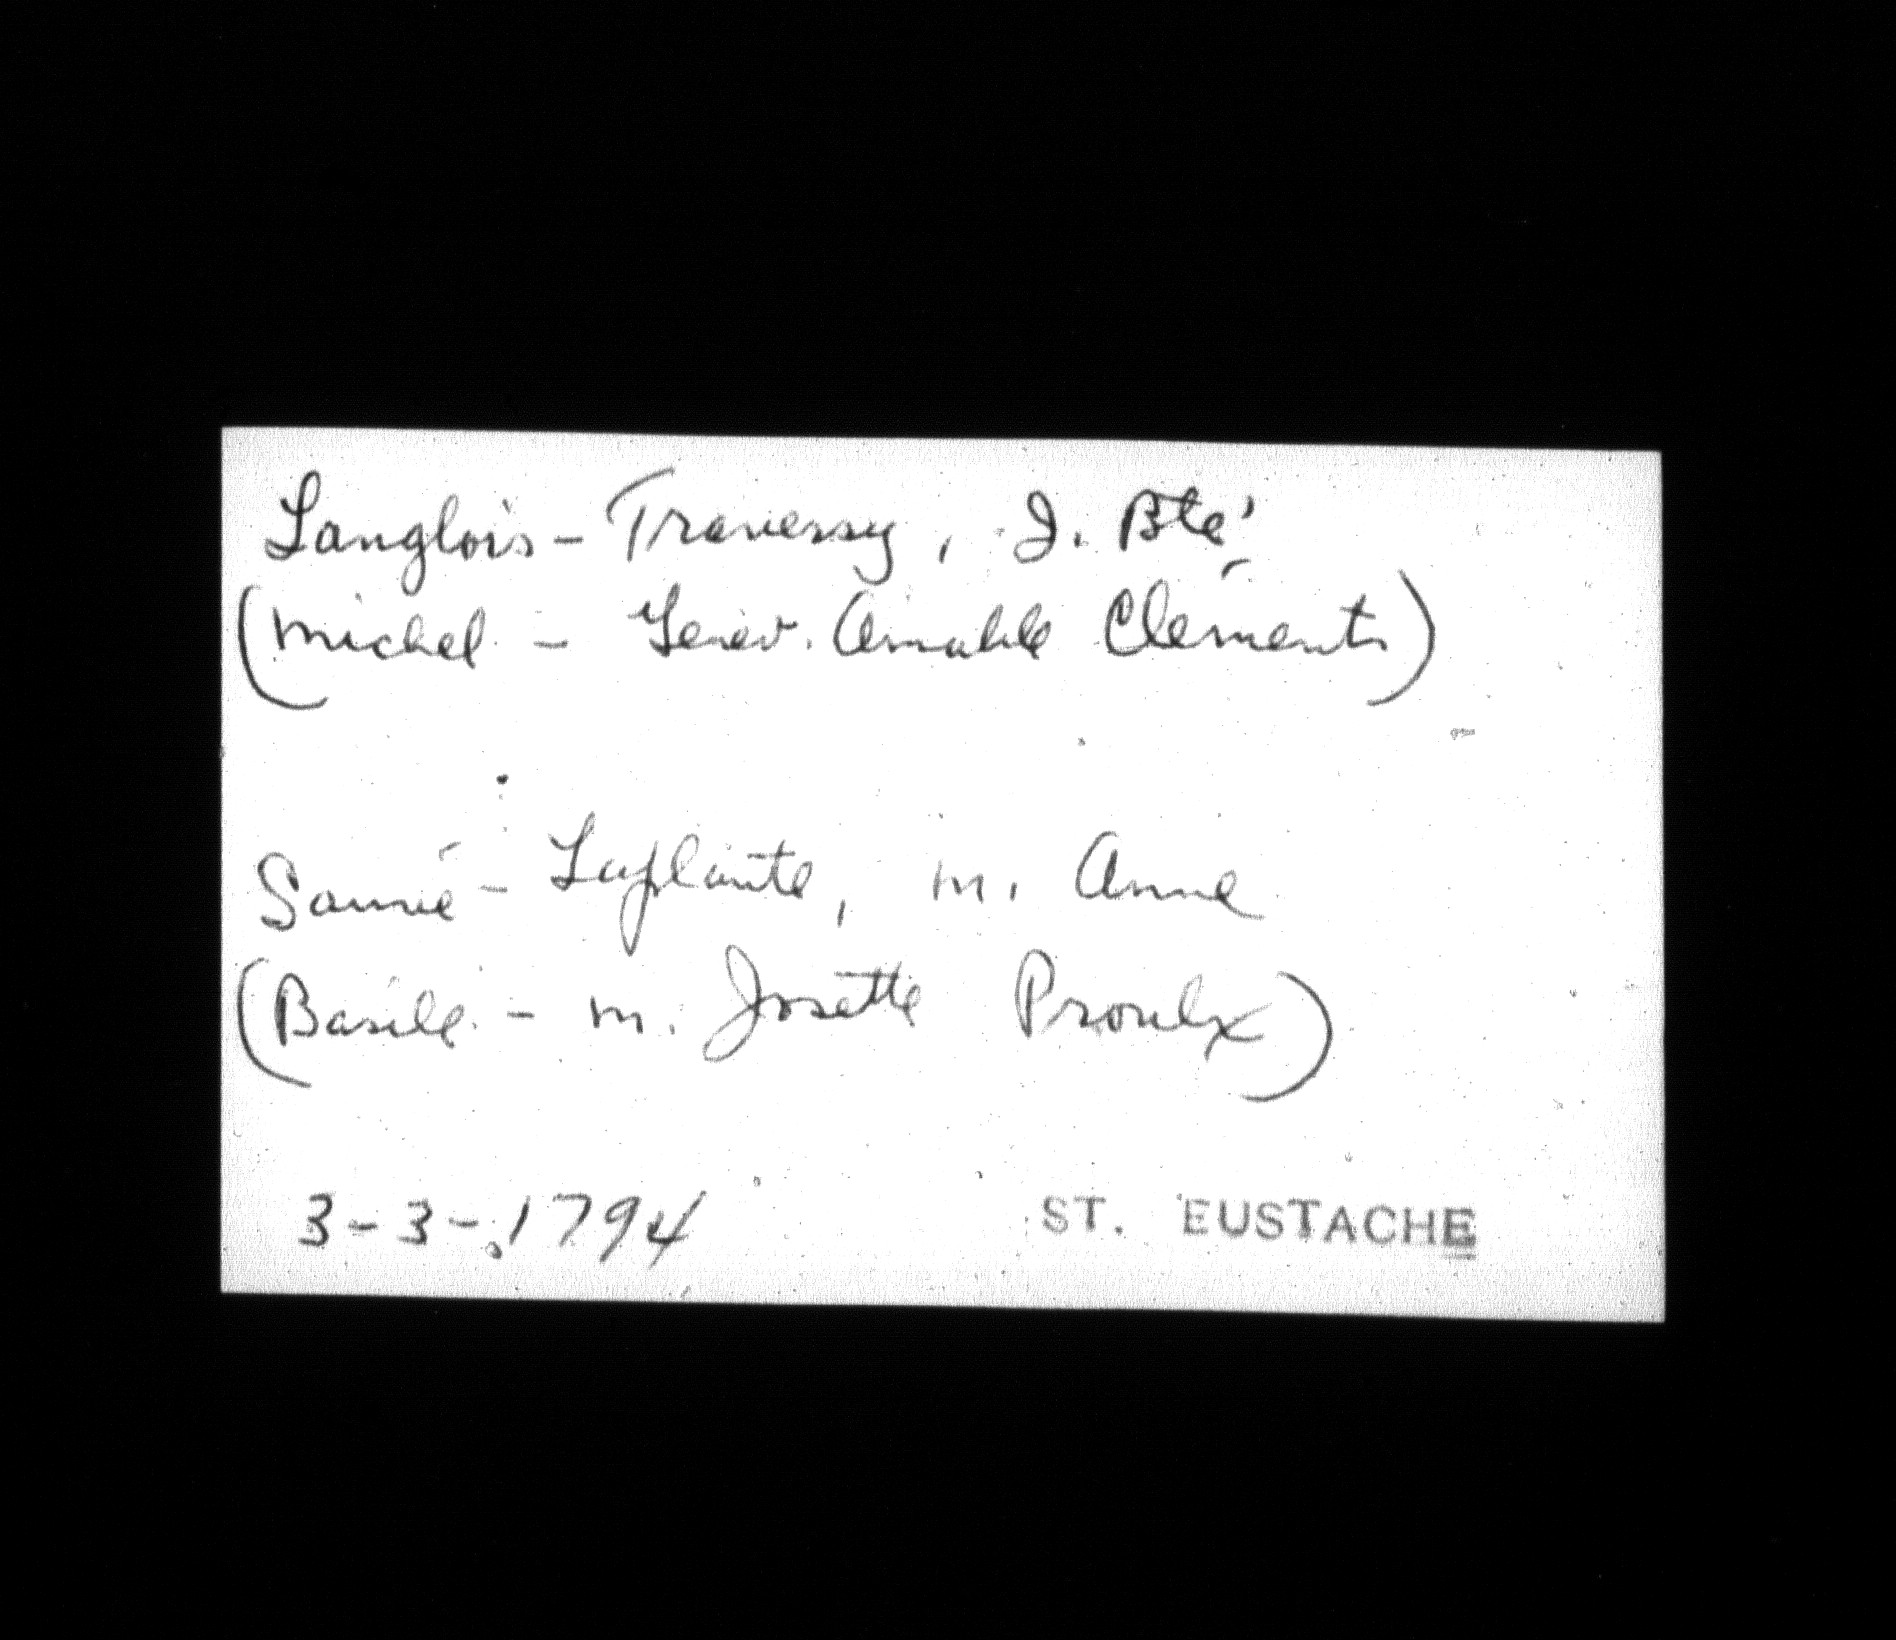 Langlois - Traversy, J. Bte
(Michel - Genev. Amable Clément)
Sarrié - Laplante, m. Anne
(Basile - m. Josette Proulx)
3-3-1794 ST. EUSTACHE